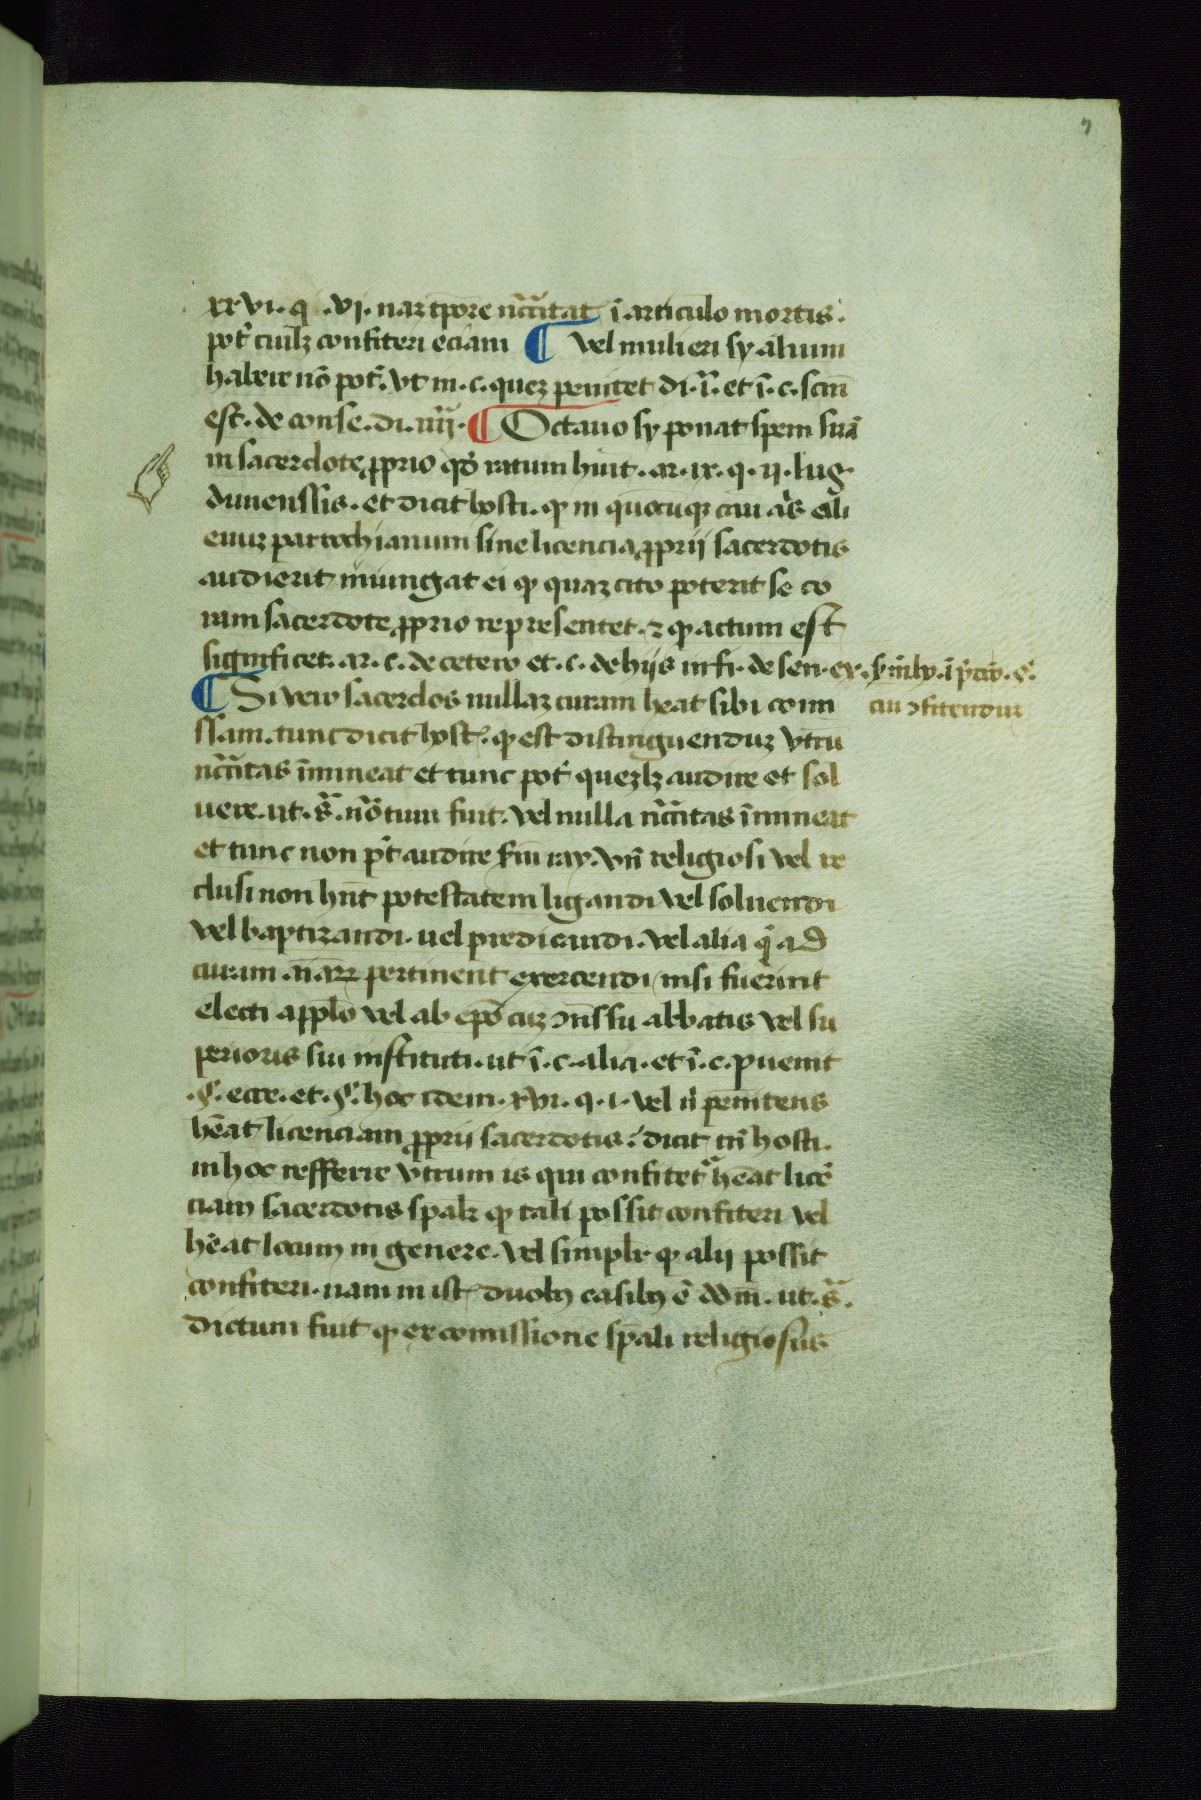 xxvi. q. vi. naz tpore nc̄c̄itat̄ ī articulo mortis.
pot̄ cuilz confiteri eciam ¶ vel mulieri sy alium
habere nō pot̄. vt in. c. quez penitet di. ī. et ī. c. scm̄
est. de conse. di. iiij. ¶ Octauo sy ponat spem suā
in sacerdote ꝓprio qd̄ ratum huit. ar. ix. q. ij. lug
dunenssis. et dicit hosti. qͥ in quocuqꝫ
euuz parrochianum sine licencia ꝓprij sacerdotis
audierit iniungat ei qͥ quaz cito poterit se co
ram sacerdote ꝓprio representet. ⁊ qͥ actum est
significet. ar. c. de cetero et. c. de hijs infr̄. de sen. ex.
¶ Si vero sacerdos nullaz curam heat sibi comi
cui ↄfitendum
ssam. tunc dicit host̄. qͥ est distinguenduz vtrū
nc̄c̄itas īmineat et tunc pot̄ quezlz audire et sol
uere. ut. s̄. nōtum fuit. vel nulla nc̄c̄itas īmineat
et tunc non pt̄ audire sm̄ ray. vn̄ religiosi vel re
clusi non hn̄t potestatem ligandi vel soluendi
vel baptizandi. uel predicandi. vel alia q̄ ad
curam. n̄arꝝ pertinent exercendi nisi fuerint
electi a pplo vel ab ep̄o cuz ↄn̄ssu abbatis vel su
perioris sui instituti. ut ī. c. alia. et ī. c. puenit
.§. ecce. et. §. hoc idem. xvi. q. i. vel n̄ penitens
hēat licenciam ꝓprii sacerdotis. dicit tn̄ hosti.
in hoc refferre vtrum is qui confitet̄ hēat licē
ciam sacerdotis spalr̄ qͥ tali possit confiteri vel
hēat locum in genere. vel simplr̄ qͥ alij possit
confiteri. nam in ist̄ duobꝰ casibꝰ ē dd̄m. ut. s̄.
dictum fuit qͥ ex comissione spali religiosus